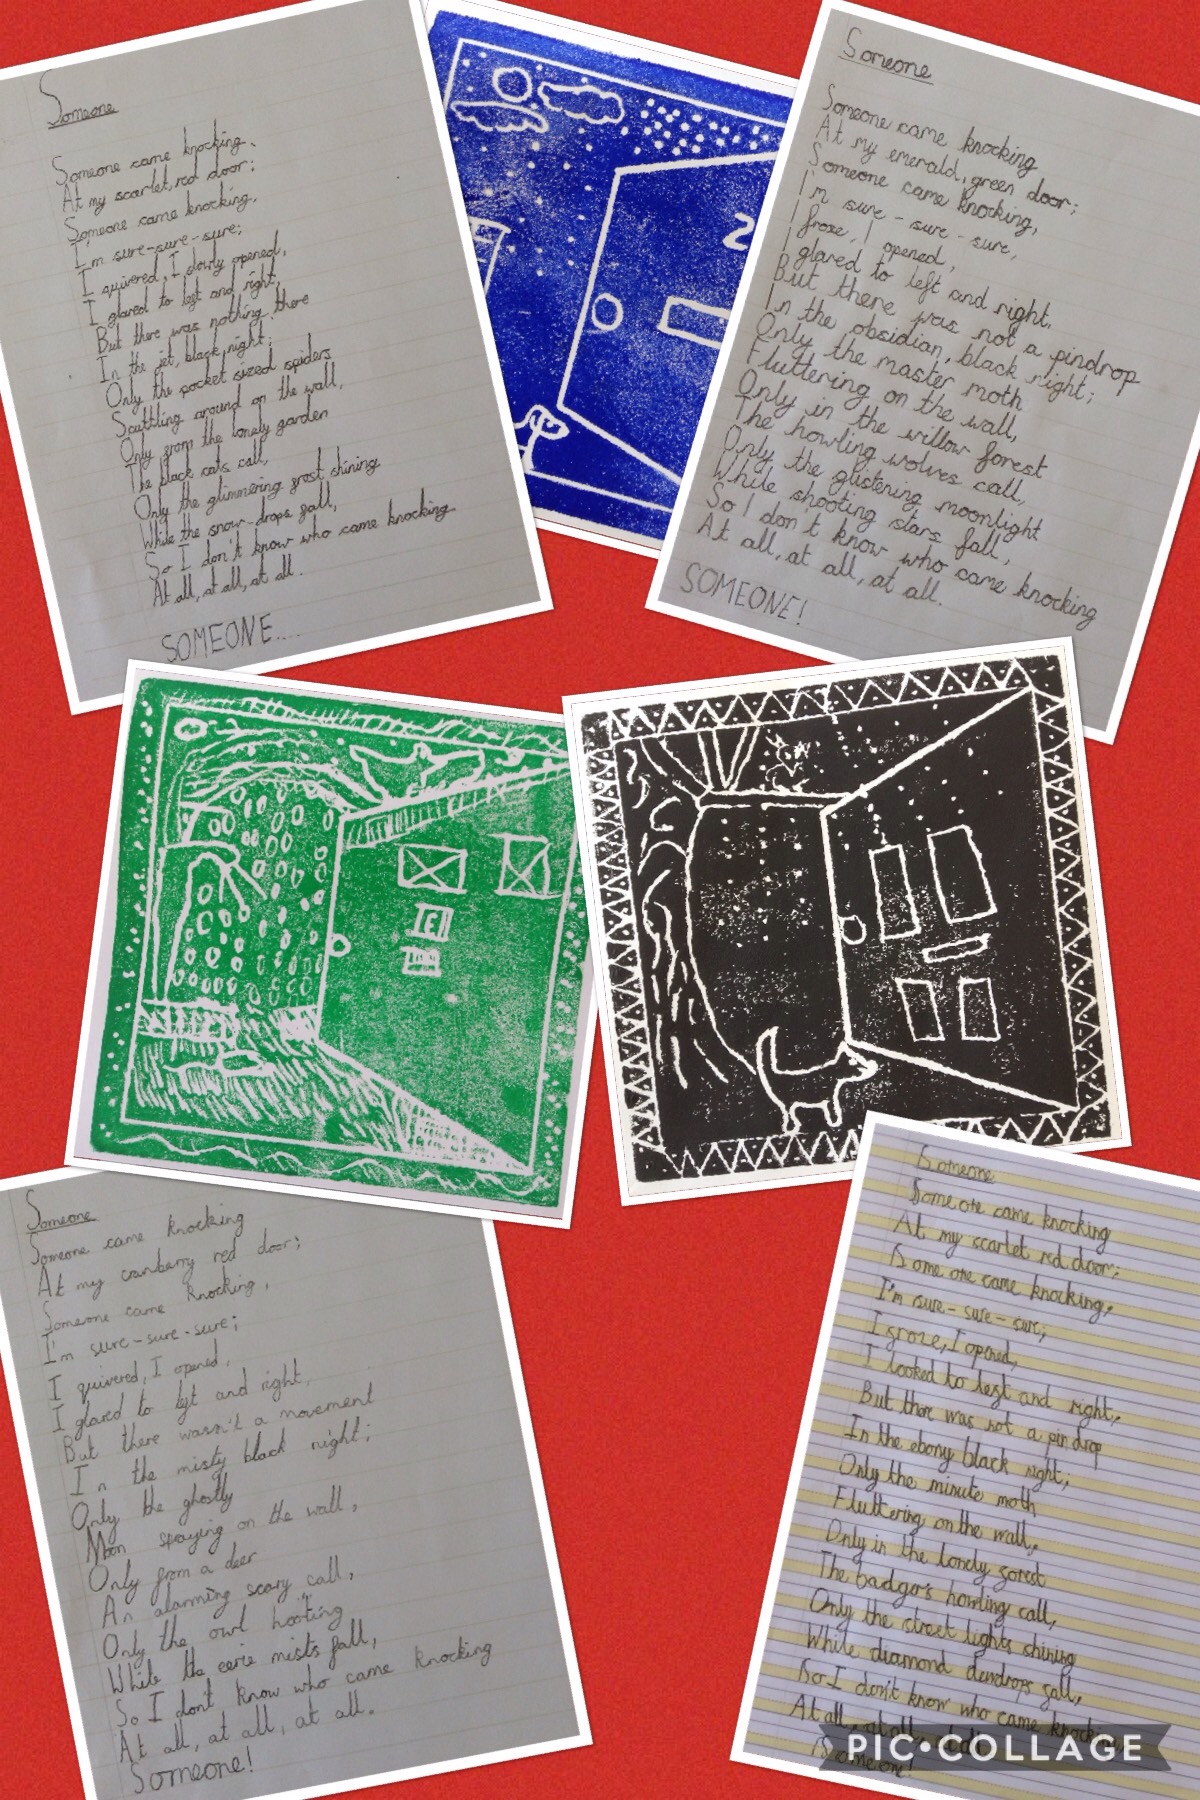 Someone
Someone came knocking.
At my scarlet, red door;
Someone came knocking,
I'm sure-sure-sure;
I quivered, I slowly opened,
I glared to left and right,
But there was nothing there
In the jet, black, night;
Only the pocket sized spiders
Scuttling around on the wall,
Only from the lonely garden
The black cats call,
Only the glimmering frost shining
While the snow-drops fall,
So I don't know who came knocking
At all, at all, at all.
SOMEONE....
2
Someone
Someone came knocking
At my emerald, green door;
Someone came knocking,
I'm sure - sure - sure,
I froze, I opened,
I glared to left and right,
But there was not a pindrop
In the obsidian, black night;
Only the master moth
Fluttering on the wall,
Only in the willow forest
The howling wolves call,
Only the glistening moonlight
While shooting stars fall,
So I don't know who came knocking
At all, at all, at all.
SOMEONE!
Someone
Someone came knocking
At my cranberry red door;
Someone came knocking,
I'm sure-sure-sure;
I quivered, I opened,
I glared to left and right,
But there wasn't a movement
In the misty black night;
Only the ghostly
Moon spraying on the wall,
Only from a deer
An alarming scary call,
Only the owl hooting
While the eerie mists fall,
So I don't know who came knocking
At all, at all, at all.
Someone!
Someone
Someone came knocking
At my scarlet red door;
Someone came knocking,
I'm sure-sure-sure;
I froze, I opened,
I looked to left and right,
But there was not a pin drop
In the ebony black night;
Only the minute moth
Fluttering on the wall,
Only in the lonely forest
The badger's howling call,
Only the street lights shining
While diamond dewdrops fall,
So I don't know who came knocking
At all, at all, at all
Someone!
PIC•COLLAGE